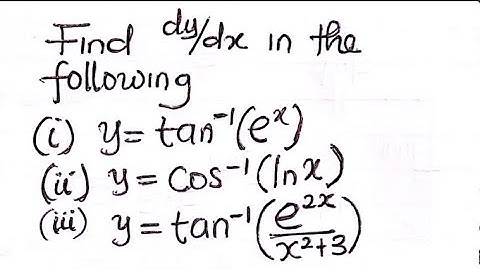 Find dy/dx in the
following
(i) y = tan⁻¹(eˣ)
(ii) y = cos⁻¹(ln x)
(iii) y = tan⁻¹(e²ˣ/x²+3)